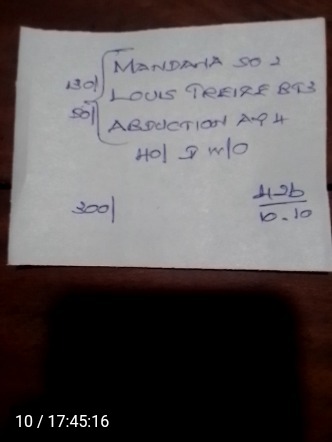 130/ MANDANA SO 2
50/ LOUIS TREIZE BT3
ABDUCTION AQ 4
40/ I W/O
300/
426
6.10
10 / 17:45:16